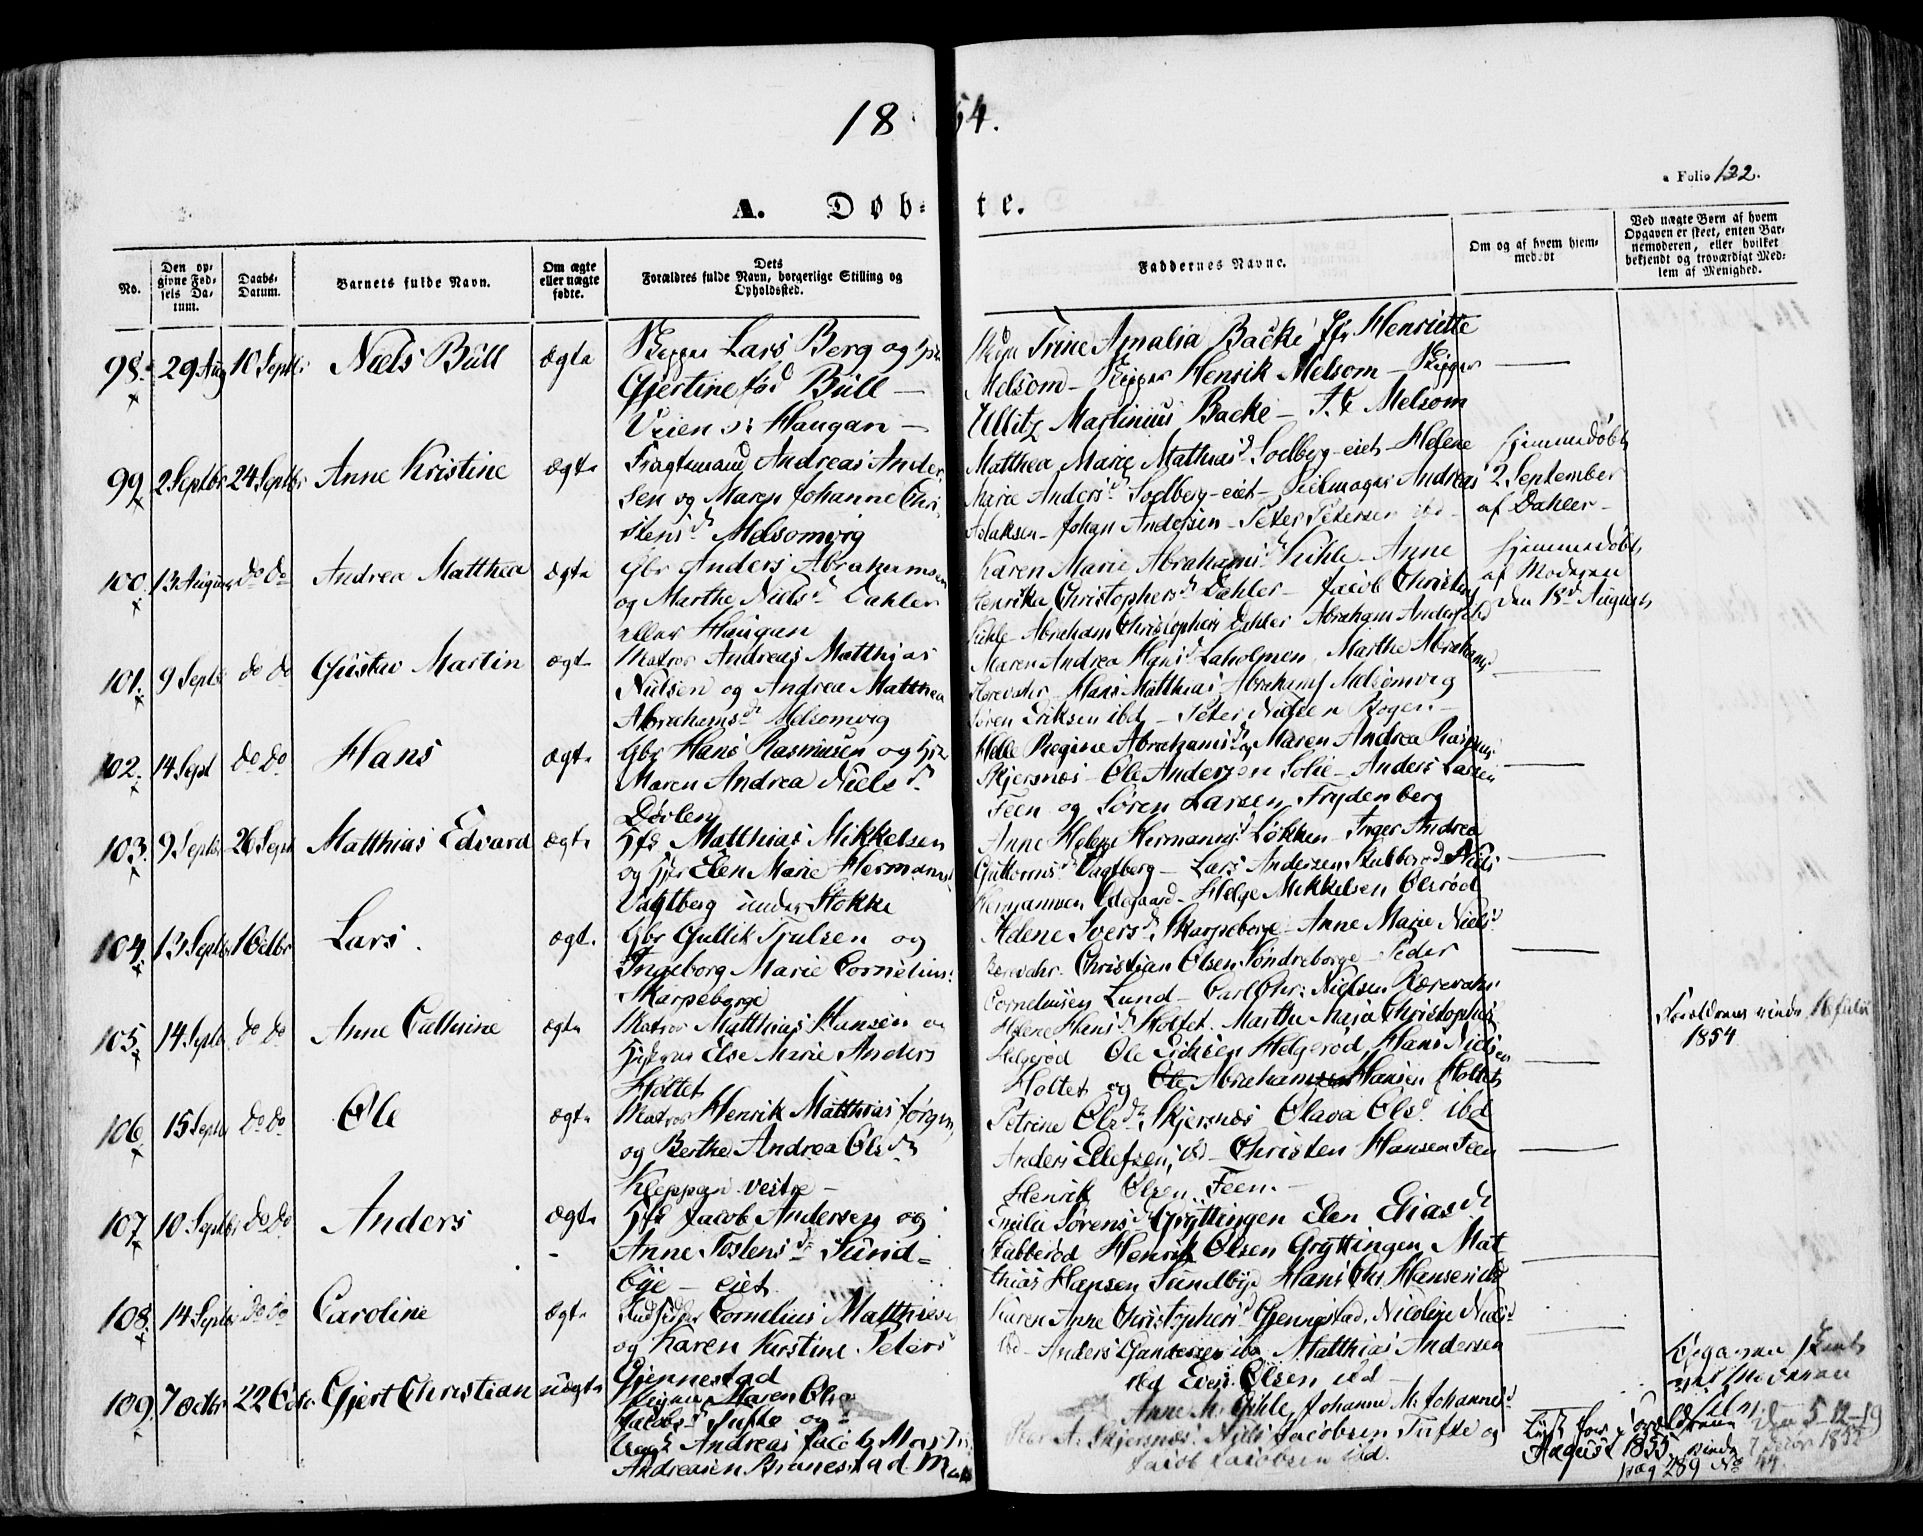 18 54.
a Folio 132.
A. Døb- te.
No.
Den op-
givne Fød-
sels Da-
tum.
Daabs-
Datum.
Barnets fulde Navn.
Om ægte
eller uægte
fødte.
Dets
Forældres fulde Navn, borgerlige Stilling og
Opholdssted.
Faddernes Navne.
Om og af hvem hjem-
medøbt
Ved uægte Børn af hvem
Opgaven er skeet, enten Bar-
nemoderen, eller hvilket
bekjendt og troværdigt Med-
lem af Menighed.
98. 29 Aug 10 Septbr Niels Bull ægte
Skipper Lars Berg og
Gjertine fød Bull —
Veien v: Haugan —
Trine Amalia Backe Henriette
Melsom — Skipper Henrik Melsom — Skipper
Ullitz Martinius Backe — Melsom
99 2 Septbr 24 Septbr Anne Kristine ægte
Fragtemand Andreas Ander
sen og Maren Johanne Chri
stens d Melsomvig
Matthea Marie Mathias d Sodberg-eiet — Helene
Marie Anders d Sodberg-eiet — Andreas
Aslaksen — Johan Andersen — Peter Petersen ibd —
Hjemmedøbt
2 September
af Dahler —
100. 13 August do do Andrea Matthea ægte
Gbr Anders Abrahamsen
og Marthe Niels d Dahler
eller Haugan
Karen Marie Abrahams d Anne
Henrika Christophers d Dahler — Jacob
Abraham Christophers Dahler Abraham
Hjemmedøbt
af Moderen
den 18d August
101. 9 Septbr do do Gustav Martin ægte
Matros Andreas Matthias
Nielsen og Andrea Matthea
Abrahams d Melsomvig
Maren Andrea Hans d Laholmen, Marthe Abrahams
Rørevahr — Hans Matthias Abrahams Melsomvig
Søren Eriksen ibd — Peter Nielsen Bogen —
102. 14 Sept do do Hans ægte
Gbr Hans Rasmusen og
Maren Andrea Niels d
Dørlen
Helle Regine Abrahams d Maren Andrea
Skjersnæs — Ole Andersen Solie — Anders Larsen
Feen og Søren Larsen Frydenberg
103. 9 Septbr 26 Sept Matthias Edvard ægte
Hfd Matthias Mikkelsen
og Elen Marie Hermans
Vagtberg under Stokke
Anne Helene Hermanns d Løkken — Inger Andrea
Guttorms d Vagtberg — Lars Andersen Stubberød Niels
Hermansen Ødegaard — Helge Mikkelsen Olerød
104. 13 Septbr 1 Octbr Lars. ægte
Gbr Gullik Trulsen og
Ingeborg Marie Cornelius
Skarpeborge
Helene Ivers d Skarpeborge — Anne Marie Niels d
Rørevahr. Christian Olsen Søndreborge — Peder
Corneliusen Lund — Carl Chr: Nielsen Rørevahr
105. 14 Septbr do do Anne Cathrine ægte
Matros Matthias Hansen og
Else Marie Anders
Holtet
Helene Hans d Holtet. Marthe Maria Christophers
Helgerød Ole Eriksen Helgerød, Hans Nielsen
Holtet og Ole Abrahamsen Hansen Holtet
Forældrene viede 16 Juli
1854
106 15 Septbr do do Ole ægte
Matros Henrik Matthias Jørgens
og Berthe Andrea Ols d
Kleppan vestre —
Petrine Ols d Skjersnæs Olava Ols d ibd
Anders Ellefsen, ibd — Christen Hansen Feen
Henrik Olsen Feen —
107. 10 Septbr do do Anders ægte
Hfd Jacob Andersen og
Anne Tostens d Sund-
bye — eiet
Emilie Sørens d Gryttingen Elen Elias d
Stubberød Henrik Olsen Gryttingen Mat
thias Hansen Sundbye Hans Chr. Hansen ibd
108. 14 Septbr do do Caroline ægte
Cornelius Matthisen
og Karen Kirstine Peters
Gjennestad
Karen Anne Christophers d Gjennestad, Nicoline Niels d
ibd — Anders Gundersen ibd Matthias Andersen
ibd Evers Olsen ibd —
109. 7 Octbr 22 Octbr Gjert Christian uægte
Pigen Maren
Jacobs d Tufte og
Andreas Jacob
Andreasen Branestad
Anne M. Gihle, Johanne M. Johannes d
A. Skjersnæs. Niels Jacobsen Tufte og
Jacob Jacobsen ibd.
Opgaven
af Moderen
August 1855.
pag 289 No 44.